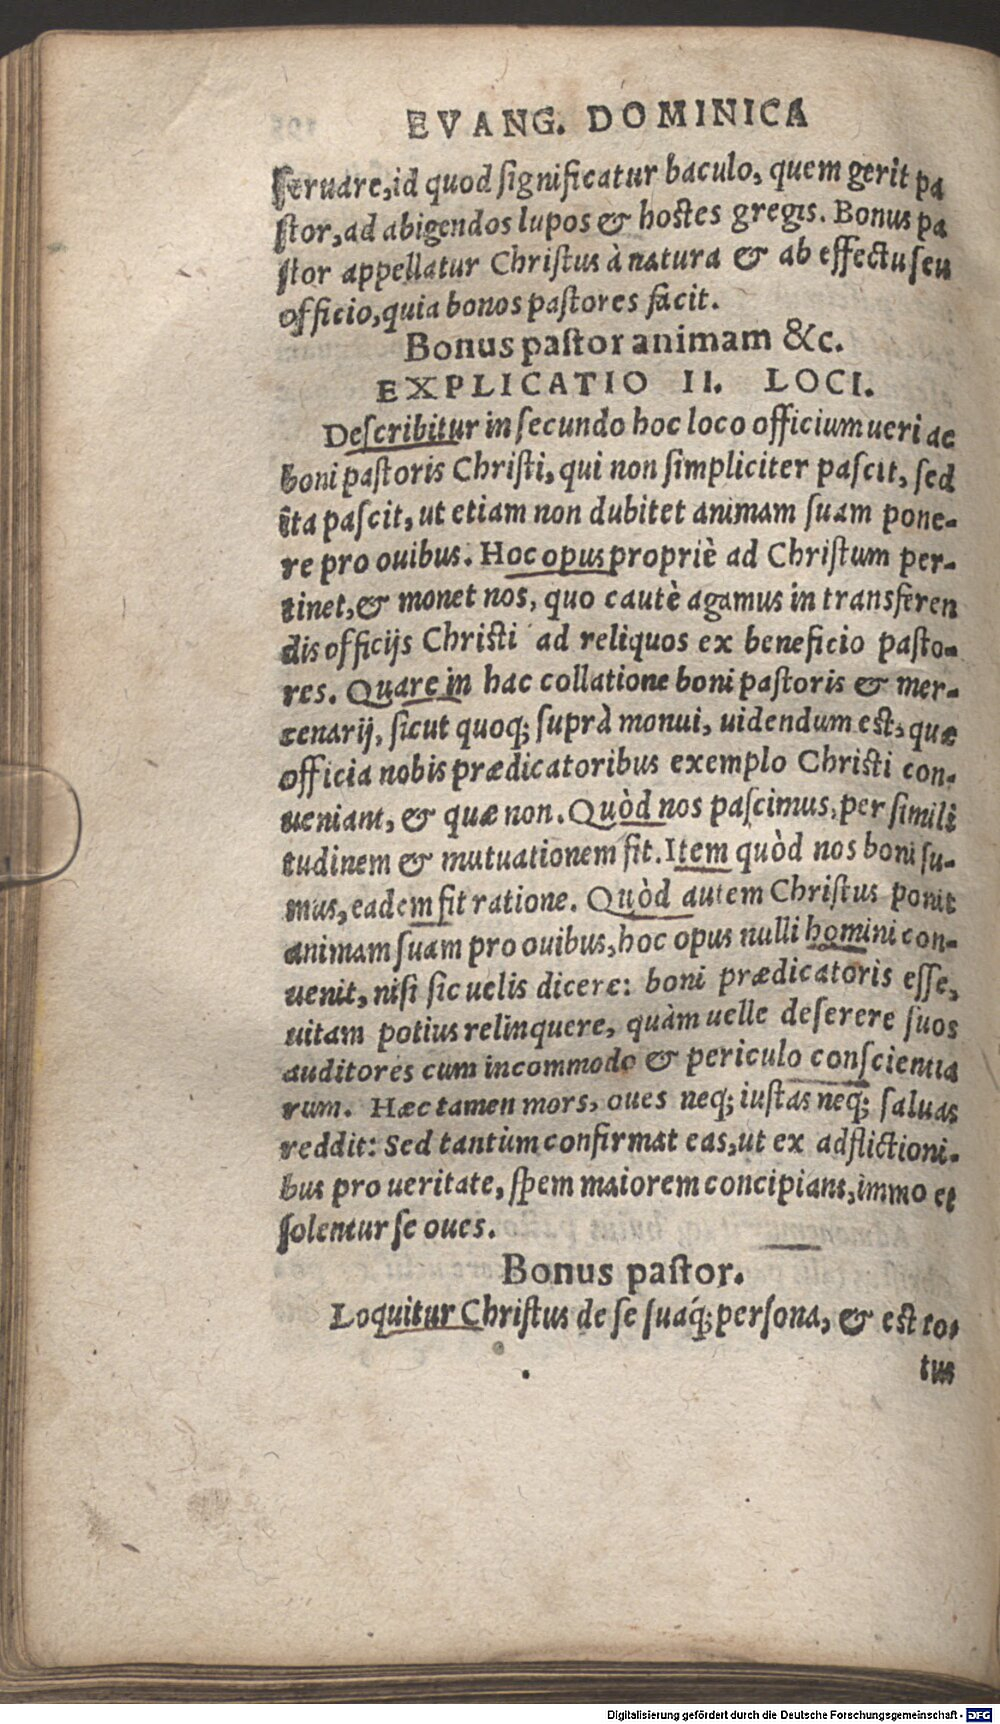 EVANG. DOMINICA
ſeruare, id quod ſignificatur baculo, quem gerit pa
ſtor, ad abigendos lupos & hoſtes gregis. Bonus pa
ſtor appellatur Chriſtus à natura & ab effectu ſeu
officio, quia bonos paſtores facit.
Bonus paſtor animam &c.
EXPLICATIO II. LOCI.
Deſcribitur in ſecundo hoc loco officium ueri ac
boni paſtoris Chriſti, qui non ſimpliciter paſcit, ſed
ita paſcit, ut etiam non dubitet animam ſuam pone-
re pro ouibus. Hoc opus propriè ad Chriſtum per-
tinet, & monet nos, quo cautè agamus in transferen
dis officijs Chriſti ad reliquos ex beneficio paſto-
res. Quare in hac collatione boni paſtoris & mer-
cenarij, ſicut quoq; ſuprà monui, uidendum est, quæ
officia nobis prædicatoribus exemplo Chriſti con-
ueniant, & quæ non. Quòd nos paſcimus, per ſimili
tudinem & mutuationem fit. Item quòd nos boni ſu-
mus, eadem fit ratione. Quòd autem Chriſtus ponit
animam ſuam pro ouibus, hoc opus nulli homini con-
uenit, niſi ſic uelis dicere: boni prædicatoris eſſe,
uitam potius relinquere, quàm uelle deſerere ſuos
auditores cum incommodo & periculo conſcientia
rum. Hæc tamen mors, oues neq; iuſtas neq; ſaluas
reddit: Sed tantùm confirmat eas, ut ex adflictioni-
bus pro ueritate, ſpem maiorem concipiant, immo et
ſolentur ſe oues.
Bonus paſtor.
Loquitur Chriſtus de ſe ſuáq; perſona, & est to-
tus
Digitalisierung gefördert durch die Deutsche Forschungsgemeinschaft - DFG